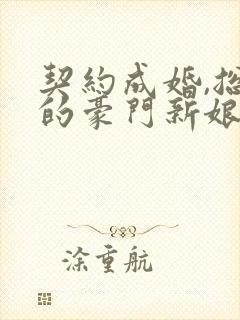 契約成婚,总
的豪門新娘
涂重航